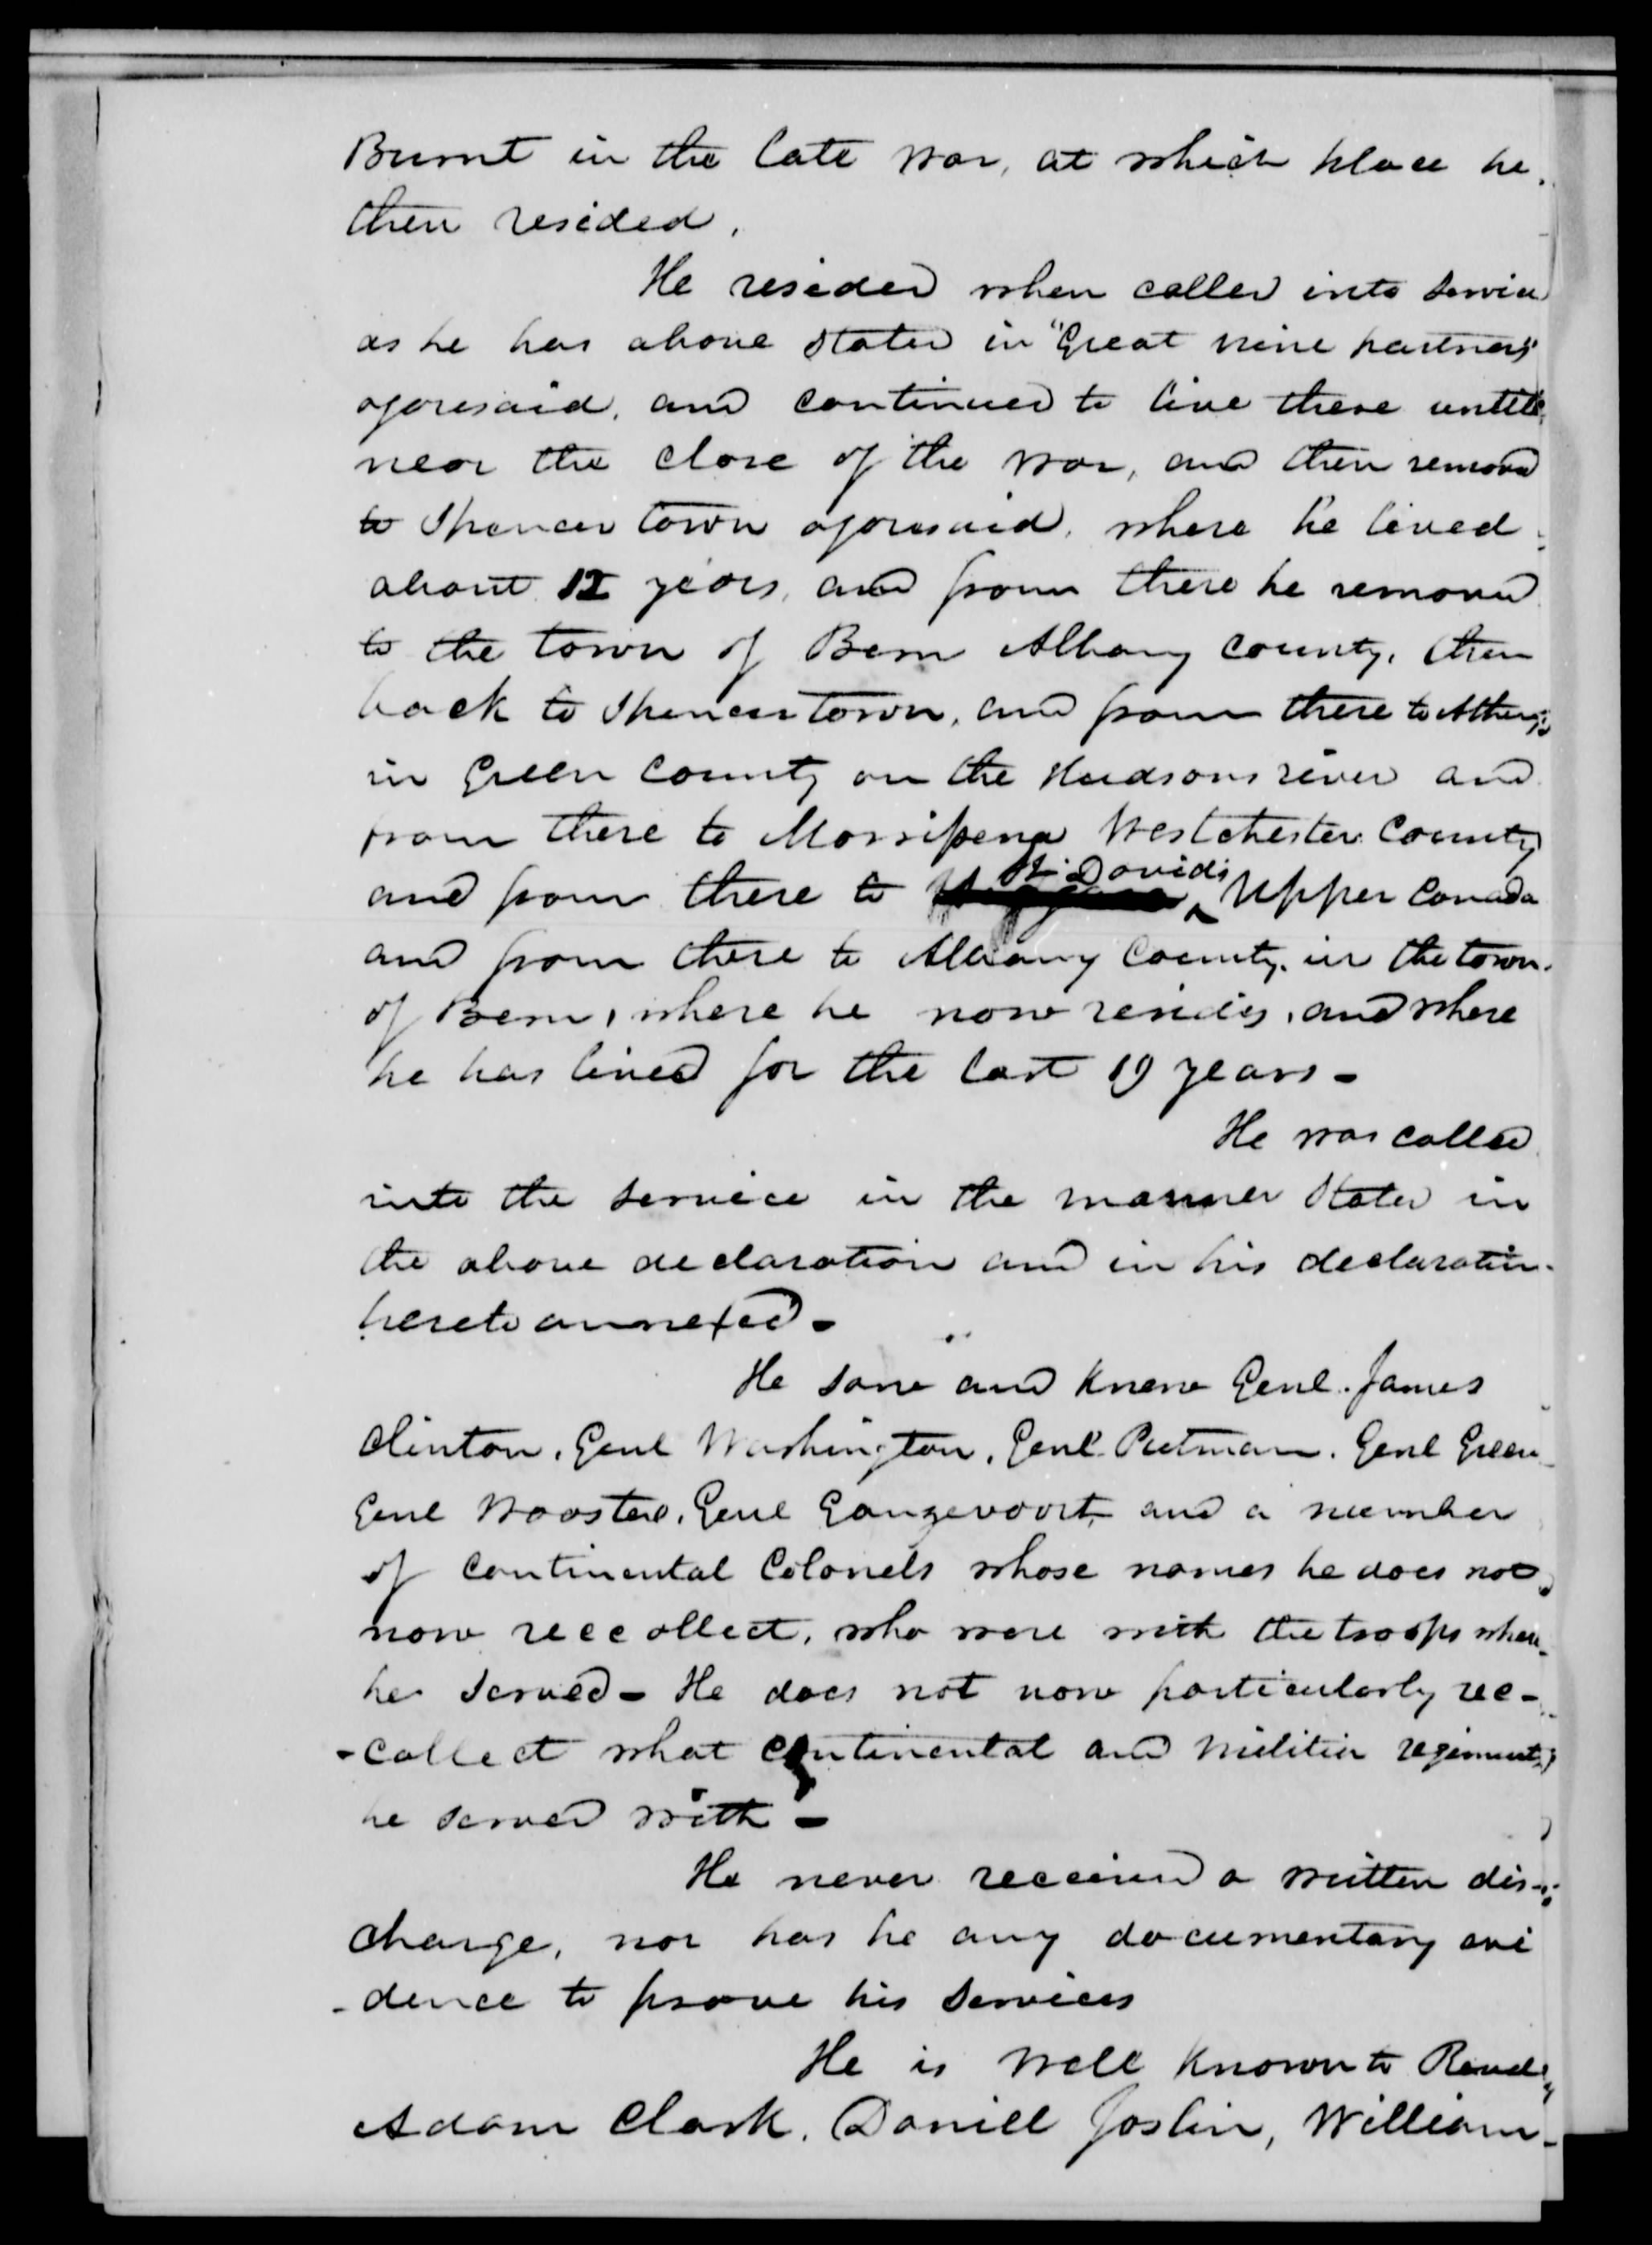 Burnt in the late war, at which place he
then resided.
He resided when called into service
as he has above stated in "Great nine partners"
aforesaid, and continued to live there untill
near the close of the war, and then removed
to Spencer town aforesaid, where he lived
about 12 years, and from there he removed
to the town of Bern Albany County, then
back to Spencertown, and from there to Athens
in Green County on the Hudsons river and
from there to Morrissena Westchester County
and from there to St. Davids Upper Canada
and from there to Albany County, in the town
of Bern, where he now resides, and where
he has lived for the last 19 years -
He was called
into the service in the manner stated in
the above declaration and in his declaration
hereto annexed -
He saw and knew Genl. James
Clinton, Genl Washington, Genl Putman, Genl Green
Genl Wooster, Genl Ganzevoort, and a number
of continental Colonels whose names he does not
now reccollect, who were with the troops where
he served - He does not now particularly rec-
-collect what continental and militia regiments
he served with -
He never received a written dis-
charge, nor has he any documentary evi
-dence to prove his services
He is well known to Revd
Adam Clark, Daniel Joslin, William